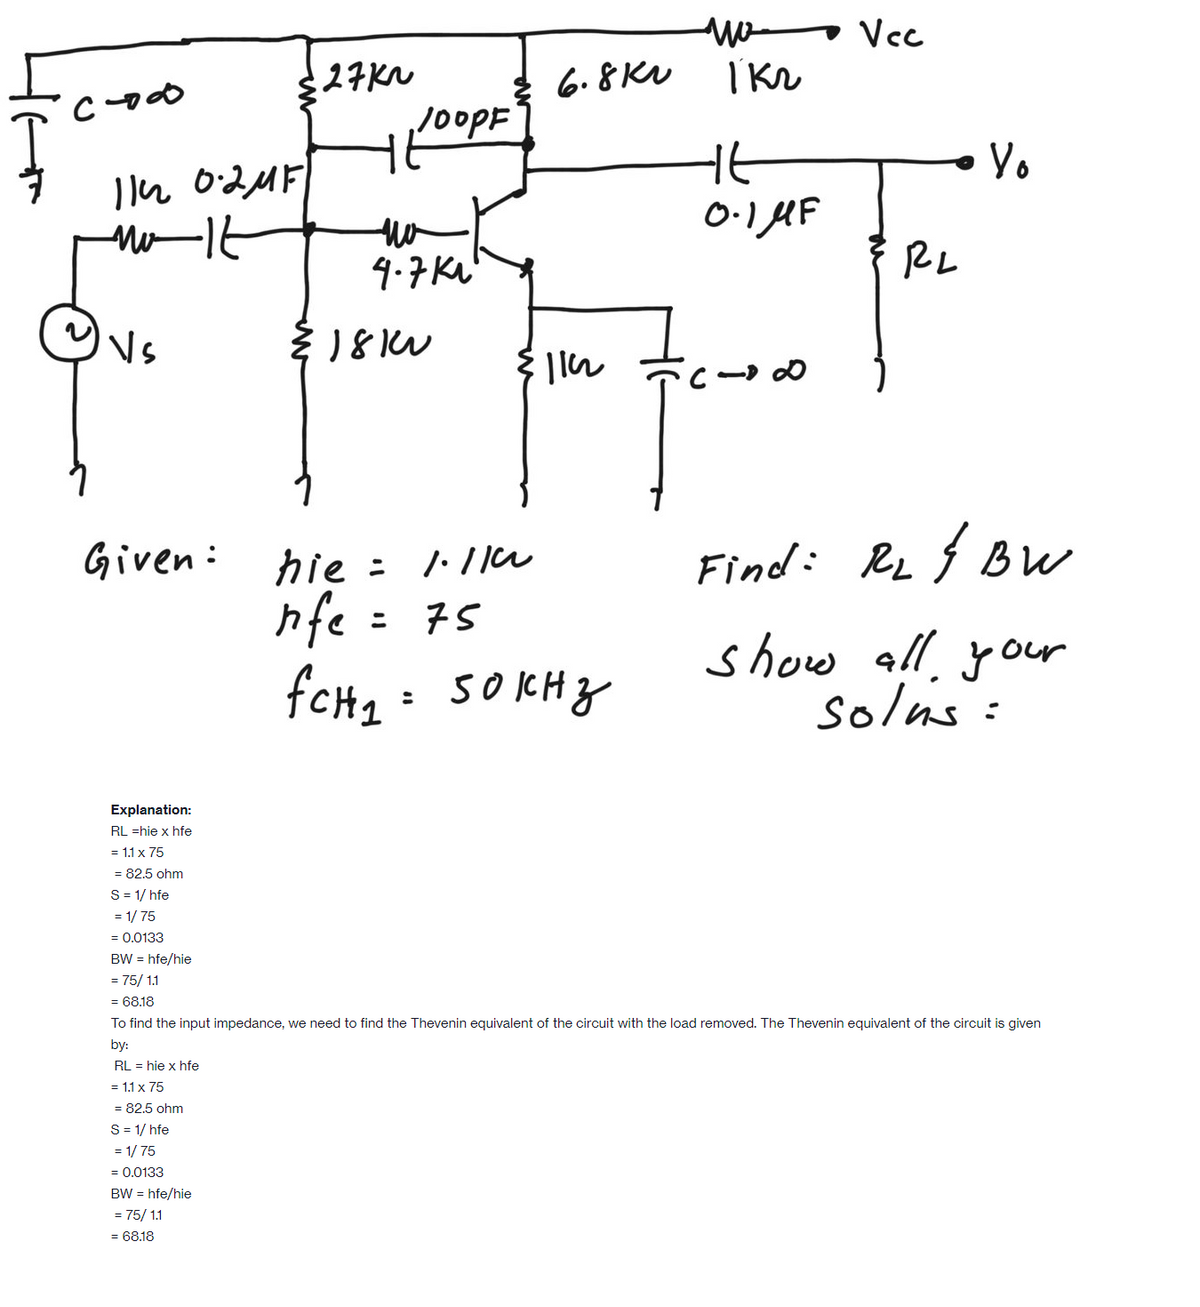 Vcc
1KΩ
27KΩ
6.8KΩ
C→∞
100PF
Vo
1KΩ 0.2MF
0.1MF
4.7KΩ
RL
Vs
18KΩ
1KΩ
C→∞
Given: hie = 1.1KΩ
hfe = 75
fCH1 = 50KHz
Find: RL & BW
show all your
solns:
Explanation:
RL =hie x hfe
= 1.1 x 75
= 82.5 ohm
S = 1/ hfe
= 1/ 75
= 0.0133
BW = hfe/hie
= 75/ 1.1
= 68.18
To find the input impedance, we need to find the Thevenin equivalent of the circuit with the load removed. The Thevenin equivalent of the circuit is given
by:
RL = hie x hfe
= 1.1 x 75
= 82.5 ohm
S = 1/ hfe
= 1/ 75
= 0.0133
BW = hfe/hie
= 75/ 1.1
= 68.18